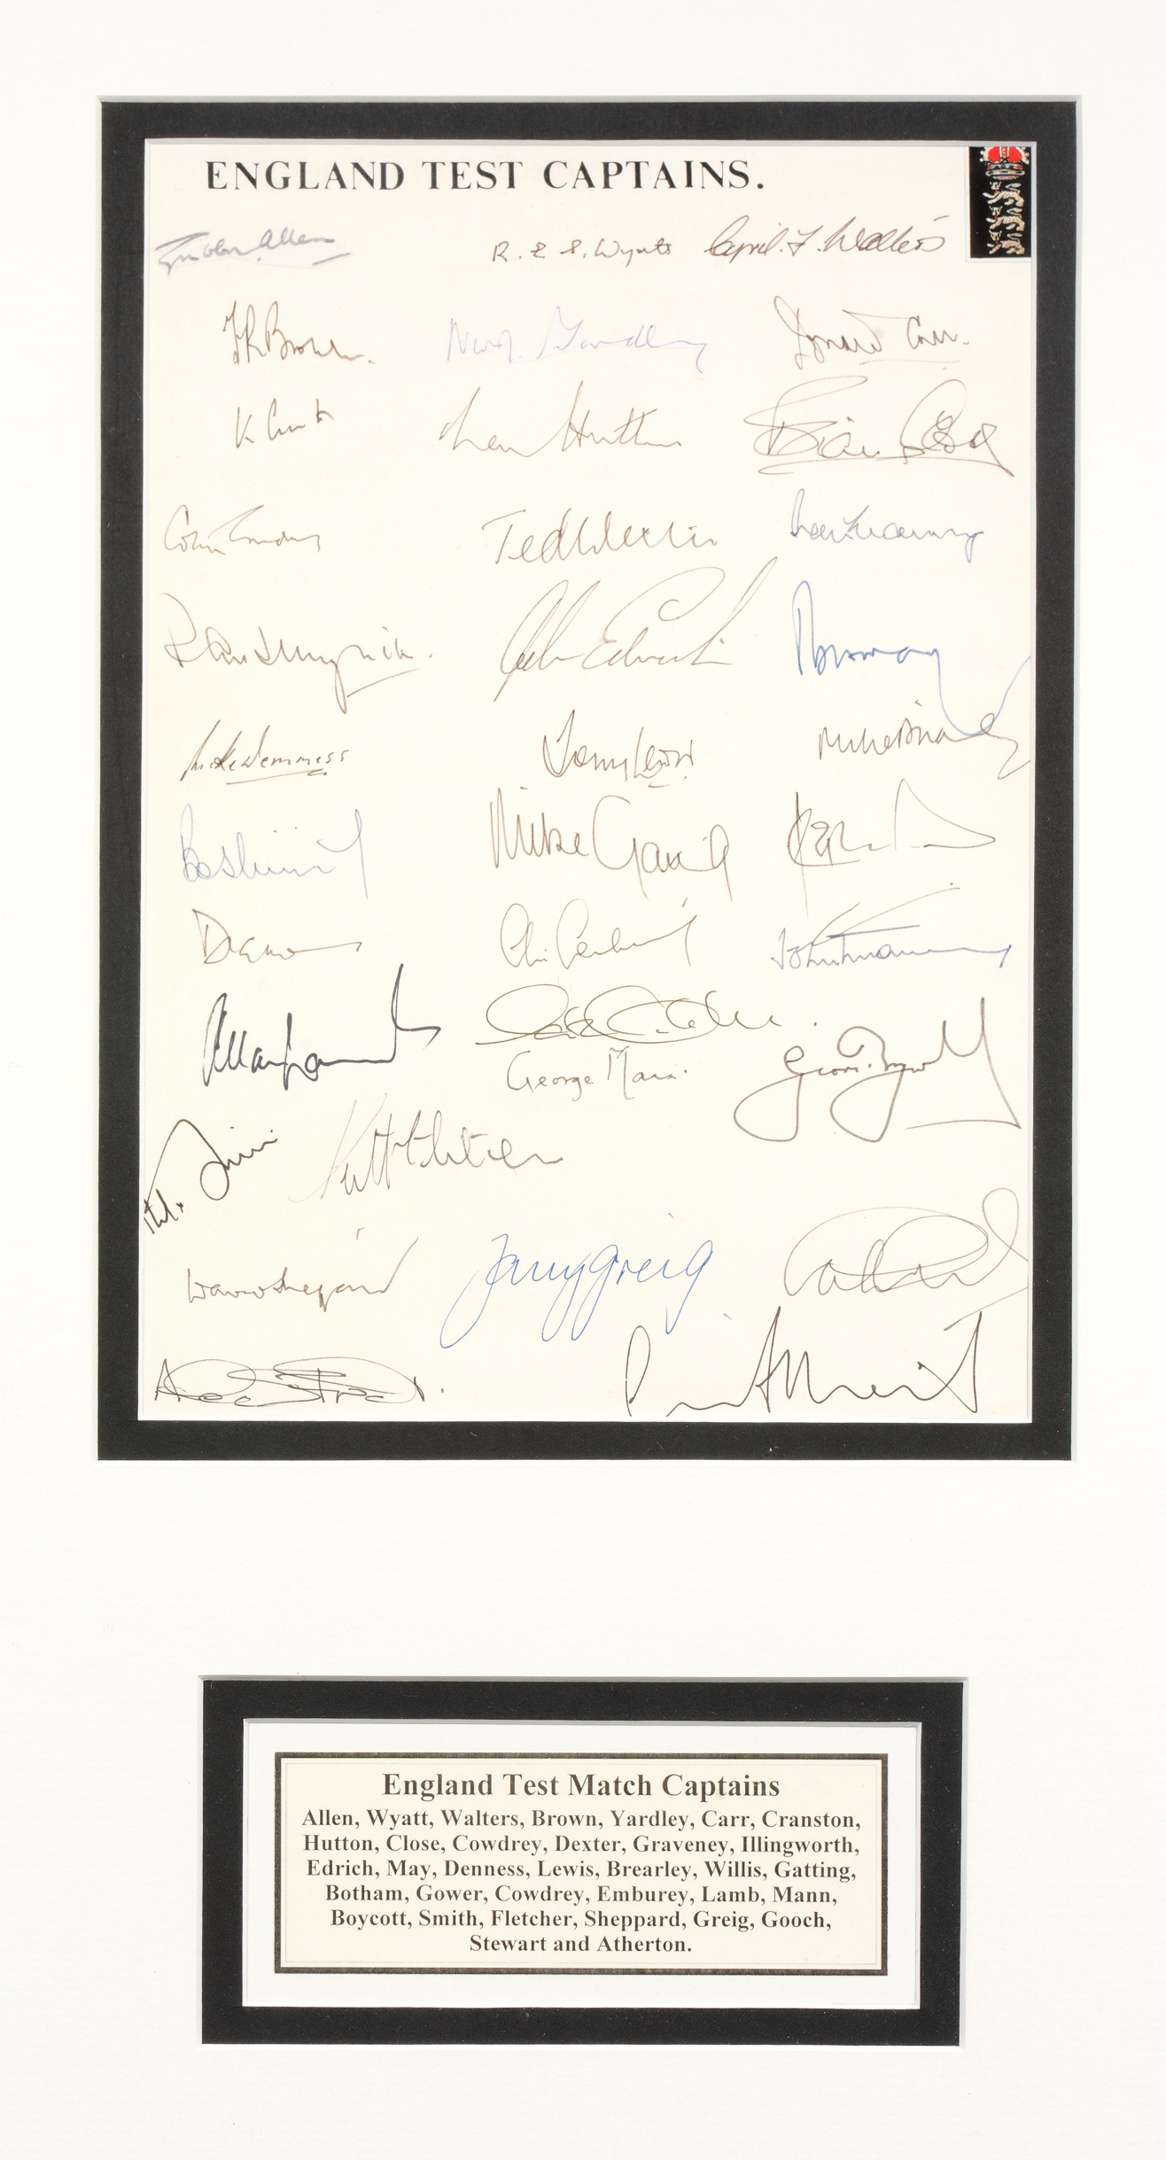 ENGLAND TEST CAPTAINS.
Gubby Allen R. E. S. Wyatt Cyril. F. Walters
FR Brown. Norman Yardley Donald Carr.
K Cranston Len Hutton Brian Close
Colin Cowdrey Ted Dexter
Ray Illingworth. John Edrich
Mike Denness Tony Lewis Mike Brearley
Bob Willis Mike Gatting
Chris Cowdrey John Emburey
Allan Lamb
George Mann. Geoff. Boycott
Keith Fletcher
David Sheppard Tony Greig
England Test Match Captains
Allen, Wyatt, Walters, Brown, Yardley, Carr, Cranston,
Hutton, Close, Cowdrey, Dexter, Graveney, Illingworth,
Edrich, May, Denness, Lewis, Brearley, Willis, Gatting,
Botham, Gower, Cowdrey, Emburey, Lamb, Mann,
Boycott, Smith, Fletcher, Sheppard, Greig, Gooch,
Stewart and Atherton.